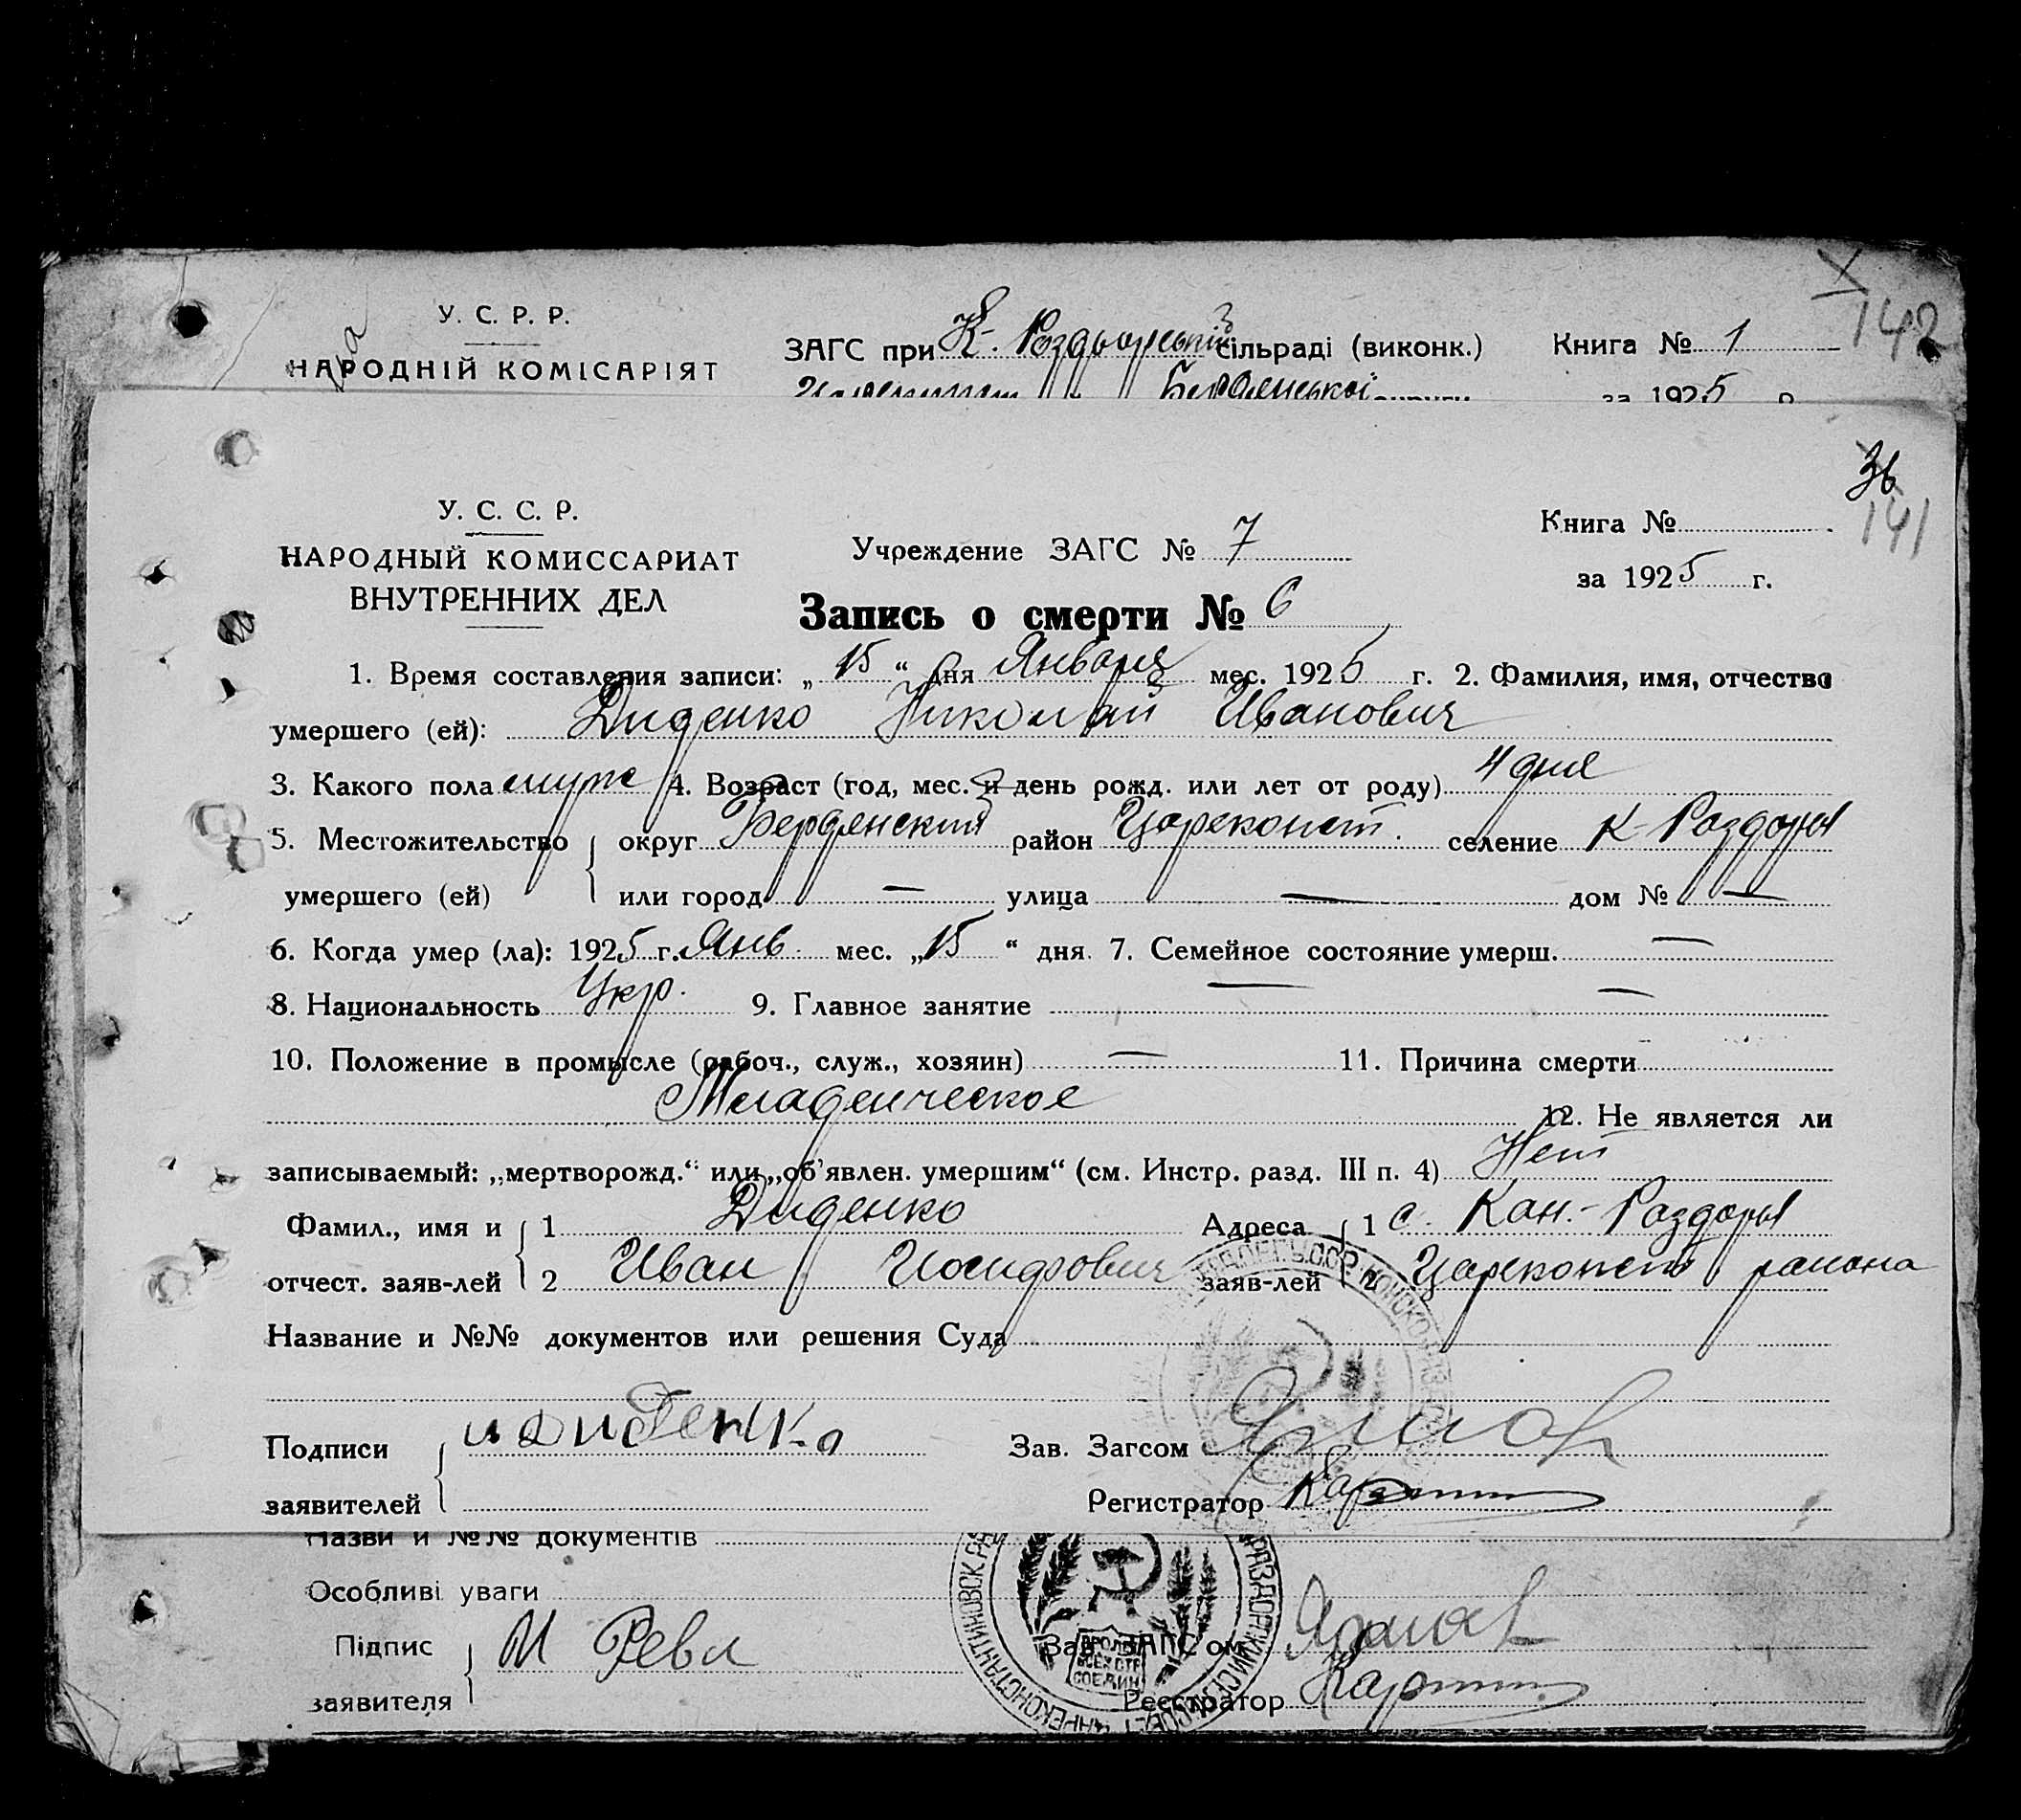 У. С. Р. Р.
НАРОДНІЙ КОМІСАРІЯТ
ЗАГС при К. Роздорській сільраді (виконк.)
Бердянської округи
Книга № 1
за 1925 р
142
36
141
У. С. С. Р.
НАРОДНЫЙ КОМИССАРИАТ
ВНУТРЕННИХ ДЕЛ
Учреждение ЗАГС № 7
Книга №
за 1925 г.
Запись о смерти № 6
1. Время составления записи: „ 15 “ дня Января мес. 1925 г. 2. Фамилия, имя, отчество
умершего (ей): Диденко Николай Иванович
3. Какого пола муж 4. Возраст (год, мес. и день рожд. или лет от роду) 4 дня
5. Местожительство округ Бердянский район Цареконст. селение К-Раздоры
умершего (ей) или город — улица — дом № —
6. Когда умер (ла): 1925 г. Янв. мес. „15 “ дня. 7. Семейное состояние умерш. —
8. Национальность Укр. 9. Главное занятие — —
10. Положение в промысле (рабоч., служ., хозяин) — 11. Причина смерти
Младенческое 12. Не является ли
записываемый: „мертворожд.“ или „об'явлен. умершим“ (см. Инстр. разд. III п. 4) Нет
Фамил., имя и 1 Диденко Адреса 1 с. Кон.-Раздоры
отчест. заяв-лей 2 Иван Иосифович заяв-лей 2 Цареконст района
Название и №№ документов или решения Суда
Подписи и Диденко Зав. Загсом
заявителей Регистратор
Назви и №№ документів
Особливі уваги
Підпис М Рева Зав. ЗАГС'ом
заявителя Реєстратор
ПРОЛЕТ
ВСЕХ СТР
СОЕДИН